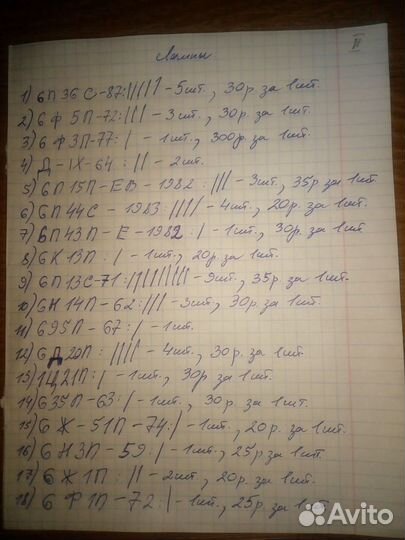 Лампы
II
1) 6П36С-87: ||||| - 5шт., 30р за 1шт.
2) 6Ф 5П-72: ||| - 3шт, 30р. за 1шт.
3) 6 Ф 3П-77: | - 1шт., 300р. за 1шт.
4) Д-IX-64 : || - 2шт.
5) 6П 15П-ЕВ - 1982 : ||| - 3шт, 35р за 1шт
6) 6П 44С - 1983 : |||| - 4шт, 20р. за 1шт.
7) 6П 43П - Е - 1982 : | - 1шт, 30р за 1шт.
8) 6К 13П : | - 1шт., 20р. за 1шт.
9) 6П 13С-71: ||||||||| - 9шт, 35р за 1шт.
10) 6Н 14П - 62: ||| - 3шт, 30р. за 1шт.
11) 6Э5П - 67: | - 1шт.
12) 6Д20П : |||| - 4шт., 30р. за 1шт.
13) 1Ц21П: | - 1шт., 30р за 1шт.
14) 6Э5П-63: | - 1шт., 30р. за 1шт.
15) 6 Ж - 51П - 74: | - 1шт, 20р за 1шт.
16) 6 Н 3П - 59: | - 1шт., 25р за 1шт
17) 6 Ж 1П : || - 2шт, 20р. за 1шт.
18) 6 Ф 1П - 72 : | - 1шт, 25р. за 1шт.
Avito